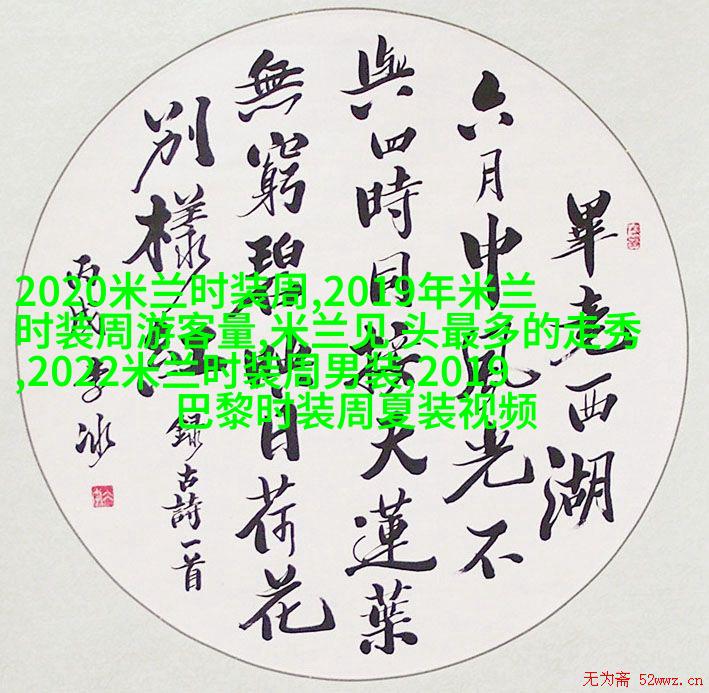 畢竟西湖
六月中風光不
與四時同接天蓮葉
無窮碧映日荷花
別樣紅
錄古詩一首
丙戌李冰
2020米兰时装周,2019年米兰
时装周游客量,米兰见 头最多的走秀
,2022米兰时装周男装,2019
巴黎时装周夏装视频
无为斋 52wwz.cn